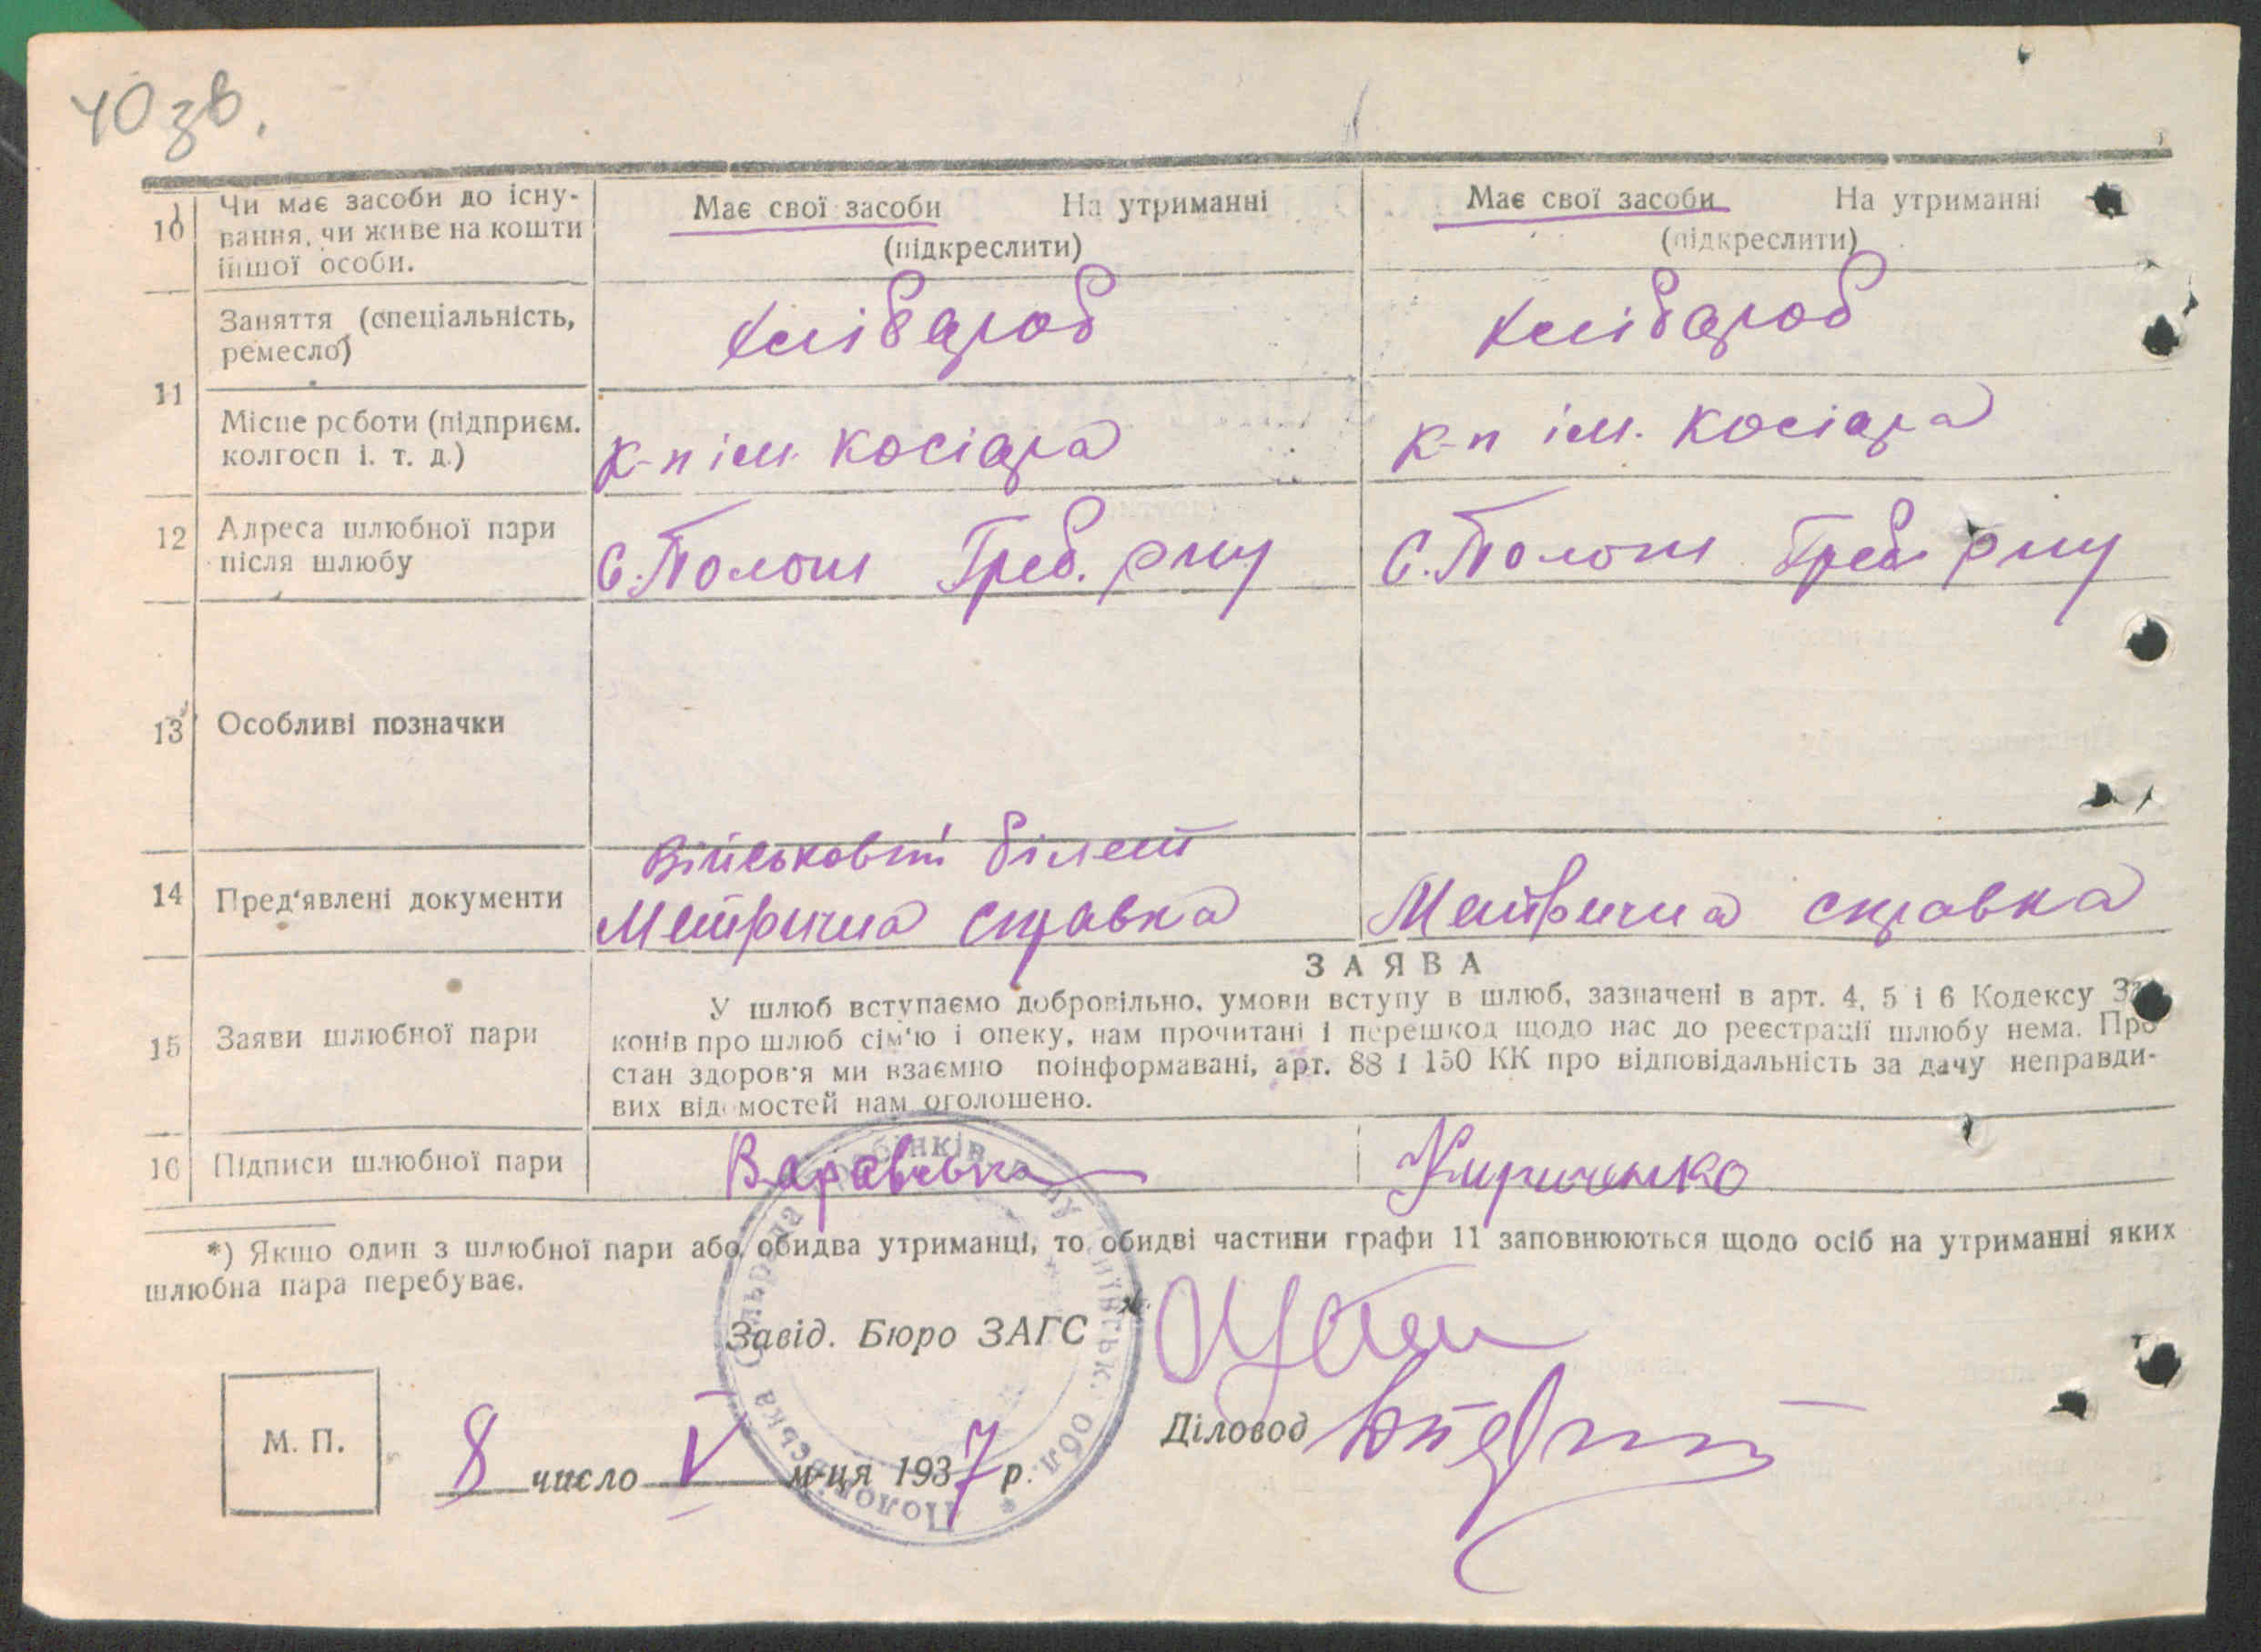 40 зв.
10 Чи має засоби до існу- Має свої засоби На утриманні Має свої засоби На утриманні
вання, чи живе на кошти (підкреслити) (підкреслити)
іншої особи.
Заняття (спеціальність, хлібароб хлібароб
ремесло)
11
Місце роботи (підприєм. к-п ім. Косіора к-п ім. Косіора
колгосп і. т. д.)
12 Адреса шлюбної пари С. Положи Греб. р-ну С. Положи Греб. р-ну
після шлюбу
13 Особливі позначки
Військовий білет
14 Пред'явлені документи Метрична справка Метрична справка
ЗАЯВА
У шлюб вступаємо добровільно, умови вступу в шлюб, зазначені в арт. 4, 5 і 6 Кодексу За-
15 Заяви шлюбної пари конів про шлюб сім'ю і опеку, нам прочитані і перешкод щодо нас до реєстрації шлюбу нема. Про
стан здоров'я ми взаємно поінформавані, арт. 88 і 150 КК про відповідальність за дачу неправди-
вих відомостей нам оголошено.
16 Підписи шлюбної пари Кириченко
*) Якщо один з шлюбної пари або обидва утриманці, то обидві частини графи 11 заповнюються щодо осіб на утриманні яких
шлюбна пара перебуває.
Завід. Бюро ЗАГС
Діловод
М. П.
8 число V м-ця 1937 р.